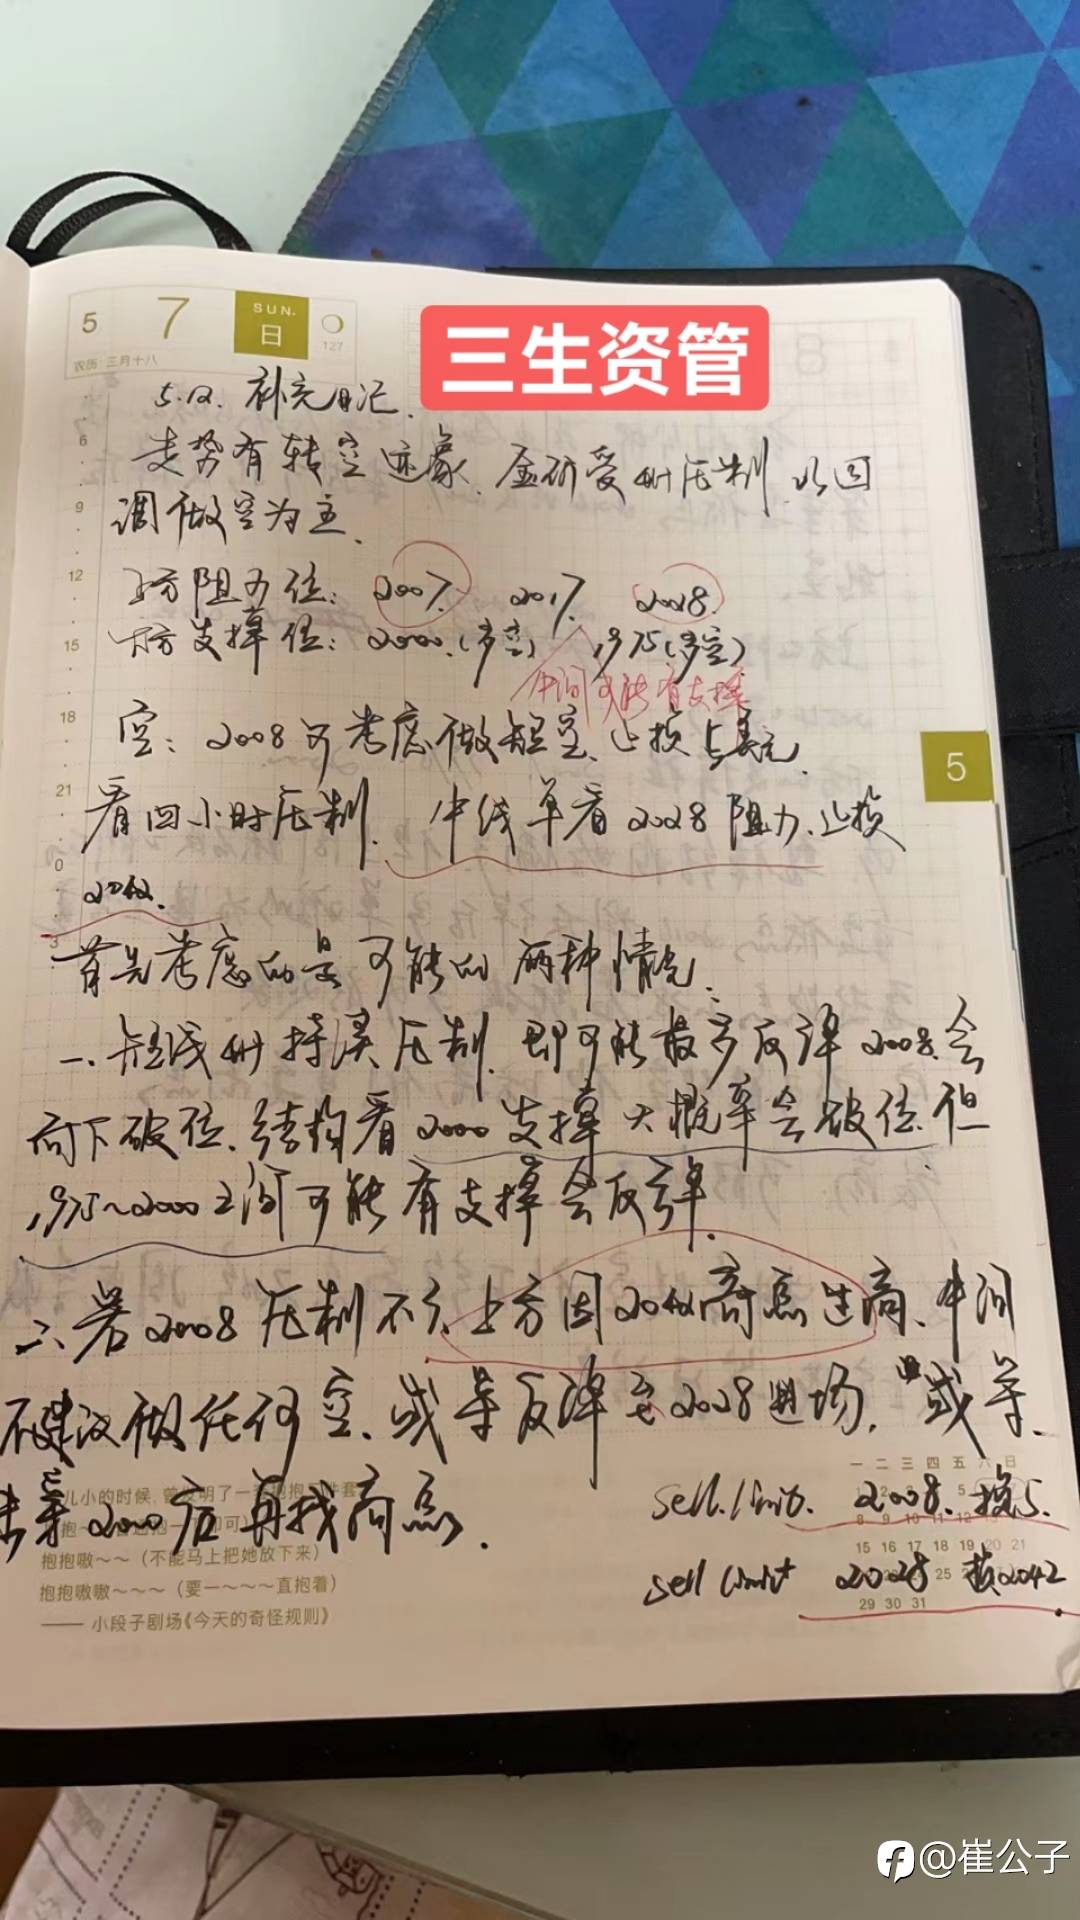 5 7 SUN. 日
127
农历:三月十八
三生资管
5.12. 补充日记.
走势有转空迹象.金所受 压制.以回
调做空为主.
上方阻力位: 2007. 2017. 2028.
下方支撑位: 2000.(多空) 1975(多空)
中间可能有支撑
空: 2008可考虑做短空、止损5美元.
看四小时压制. 中线单看2028阻力.止损
2042.
首先考虑的是可能的两种情况.
一、短线 持续压制.即可能最多反弹2008.会
向下破位.结构看2000支撑大概率会破位.但
1975~2000之间可能有支撑会反弹.
二、若2008压制不了.上方因2042高点过高、中间
不建议做任何空.或等反弹至2028进场. 或等
未来2000后再找高点.
sell.limit. 2008. 损5.
sell limit 2028 损2042
6
9
12
15
18
21
0
3
5
一 二 三 四 五 六 日
8 9 10 11 12
15 16 17 18 19 20 21
24 25
29 30 31
儿小的时候,曾发明了一 抱抱 件套
抱抱嗷~~(不能马上把她放下来)
抱抱嗷嗷~~~(要一~~~直抱着)
——小段子剧场《今天的奇怪规则》
@崔公子